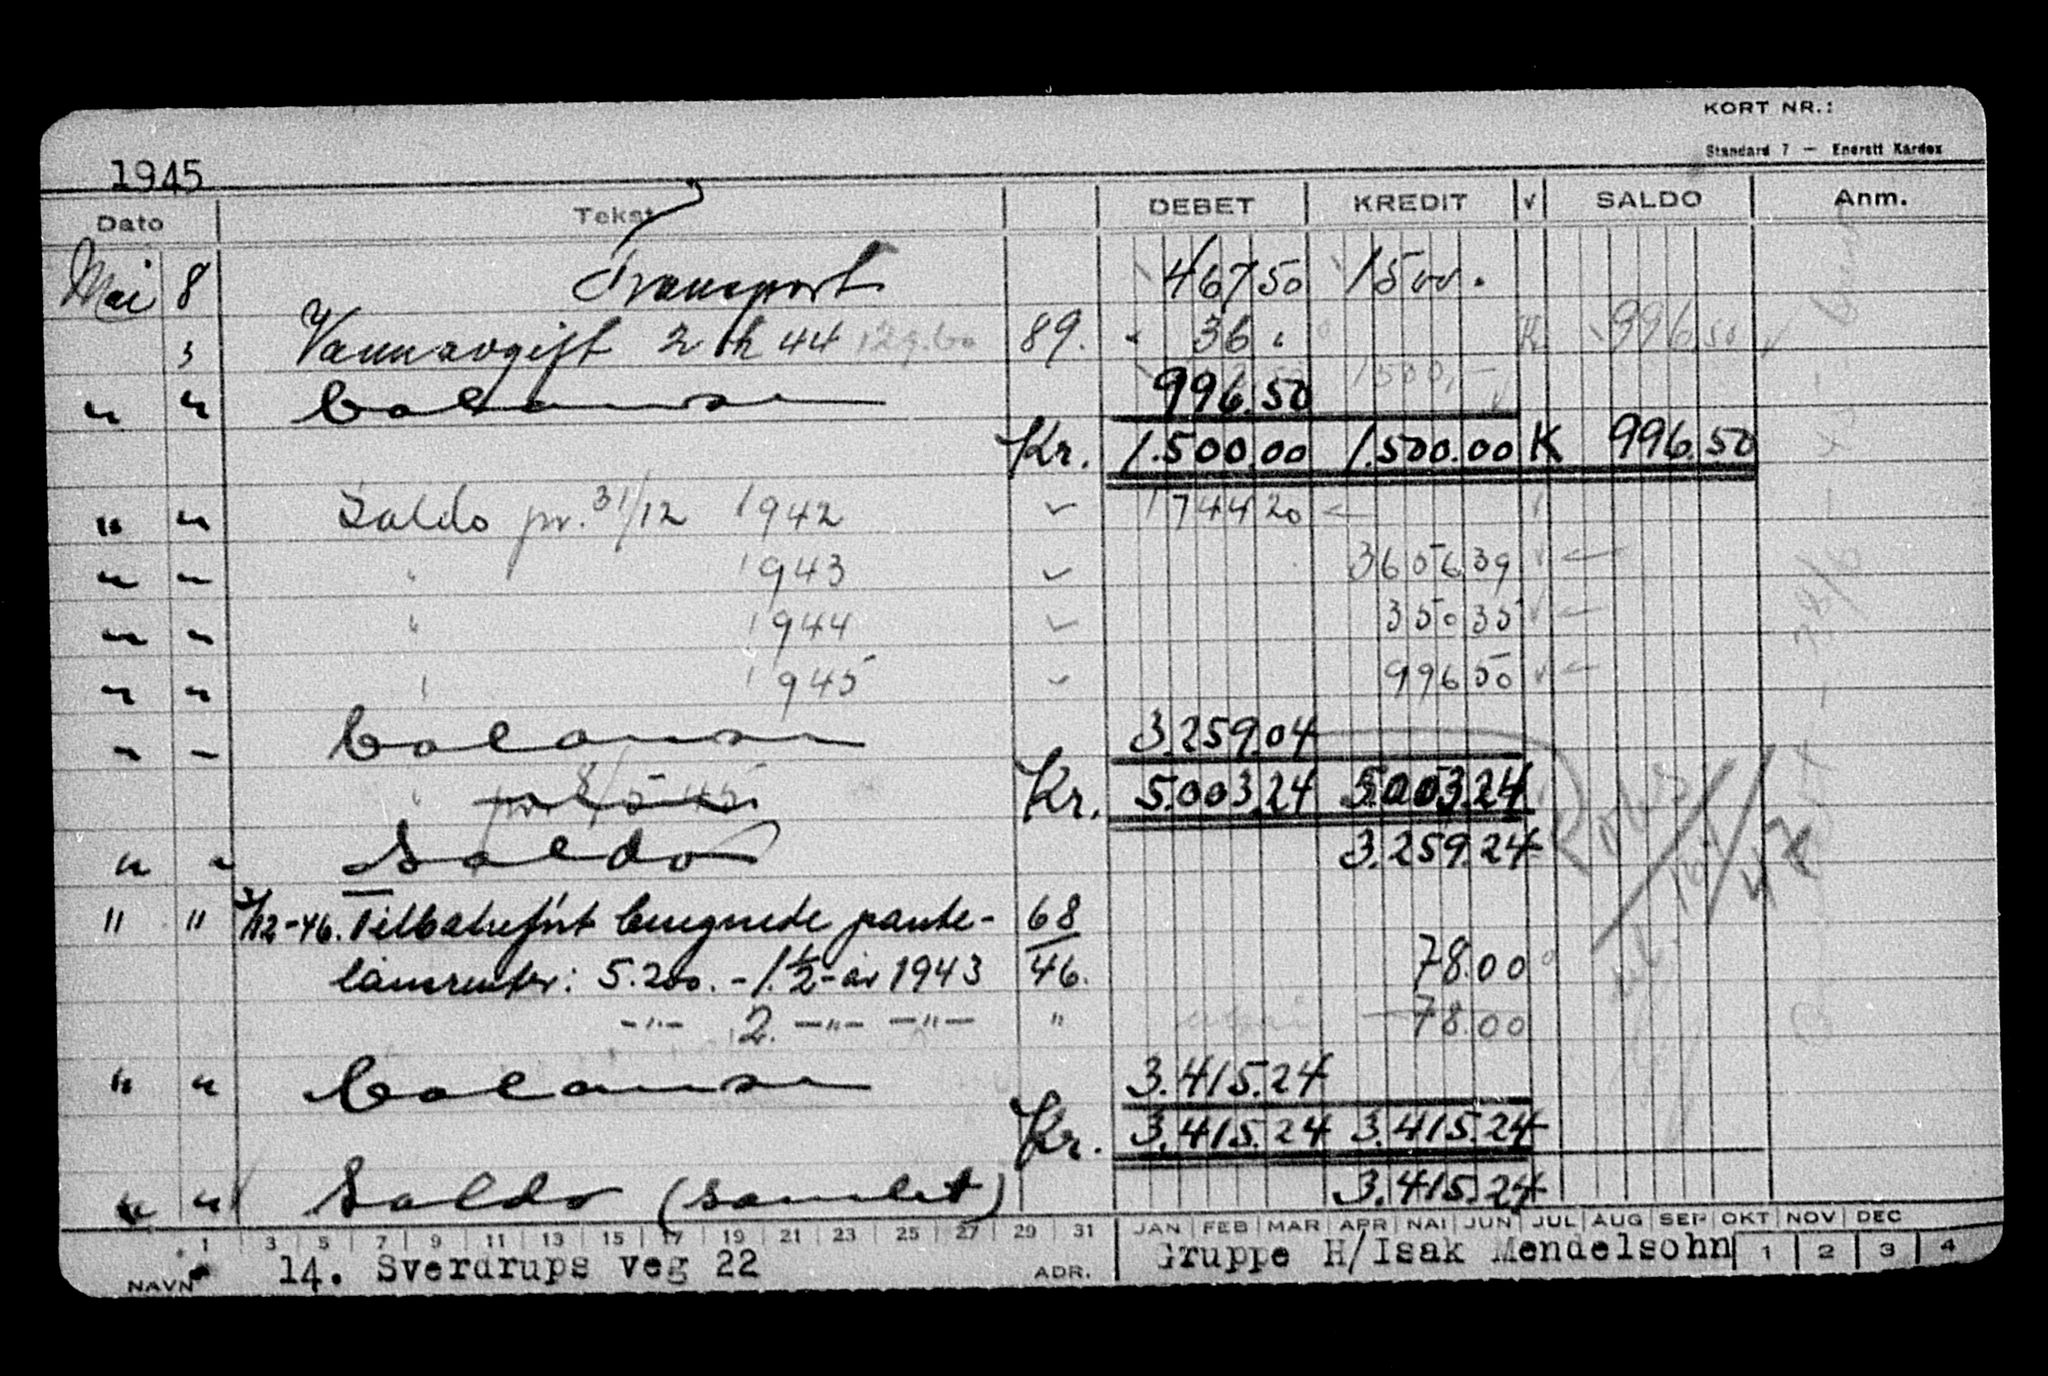 KORT NR.:
Standard 7 — Enerett Kardex
1945
Dato Tekst DEBET KREDIT v SALDO Anm.
Mai 8 Transport 467 50 1500.
3 Vannavgift 2 h 44 129.60 89. 36. K. 996.50
" " balanse 996.50 1500,-
Kr. 1.500.00 1.500.00 K 996.50
" " Saldo pr. 31/12 1942 1744 20
" " " 1943 3605639
" " " 1944 350 35
" " " 1945 996 50
" " balanse 3.259.04
" pr 8/5 45 Kr. 5.003.24 5.003.24
" " Saldo 3.259.24
" " 3/12-46. Tilbakeført beregnede pante- 68
lånsrenter: 5.200.- 1.½-år 1943 46. 78.00
-"- 2. -"- -"- " 78.00
" " balanse 3.415.24
Kr. 3.415.24 3.415.24
" " Saldo (samlet) 3.415.24
1 3 5 7 9 11 13 15 17 19 21 23 25 27 29 31 JAN FEB MAR APR MAI JUN JUL AUG SEP OKT NOV DEC
NAVN 14. Sverdrups veg 22 ADR. Gruppe H/Isak Mendelsohn 1 2 3 4